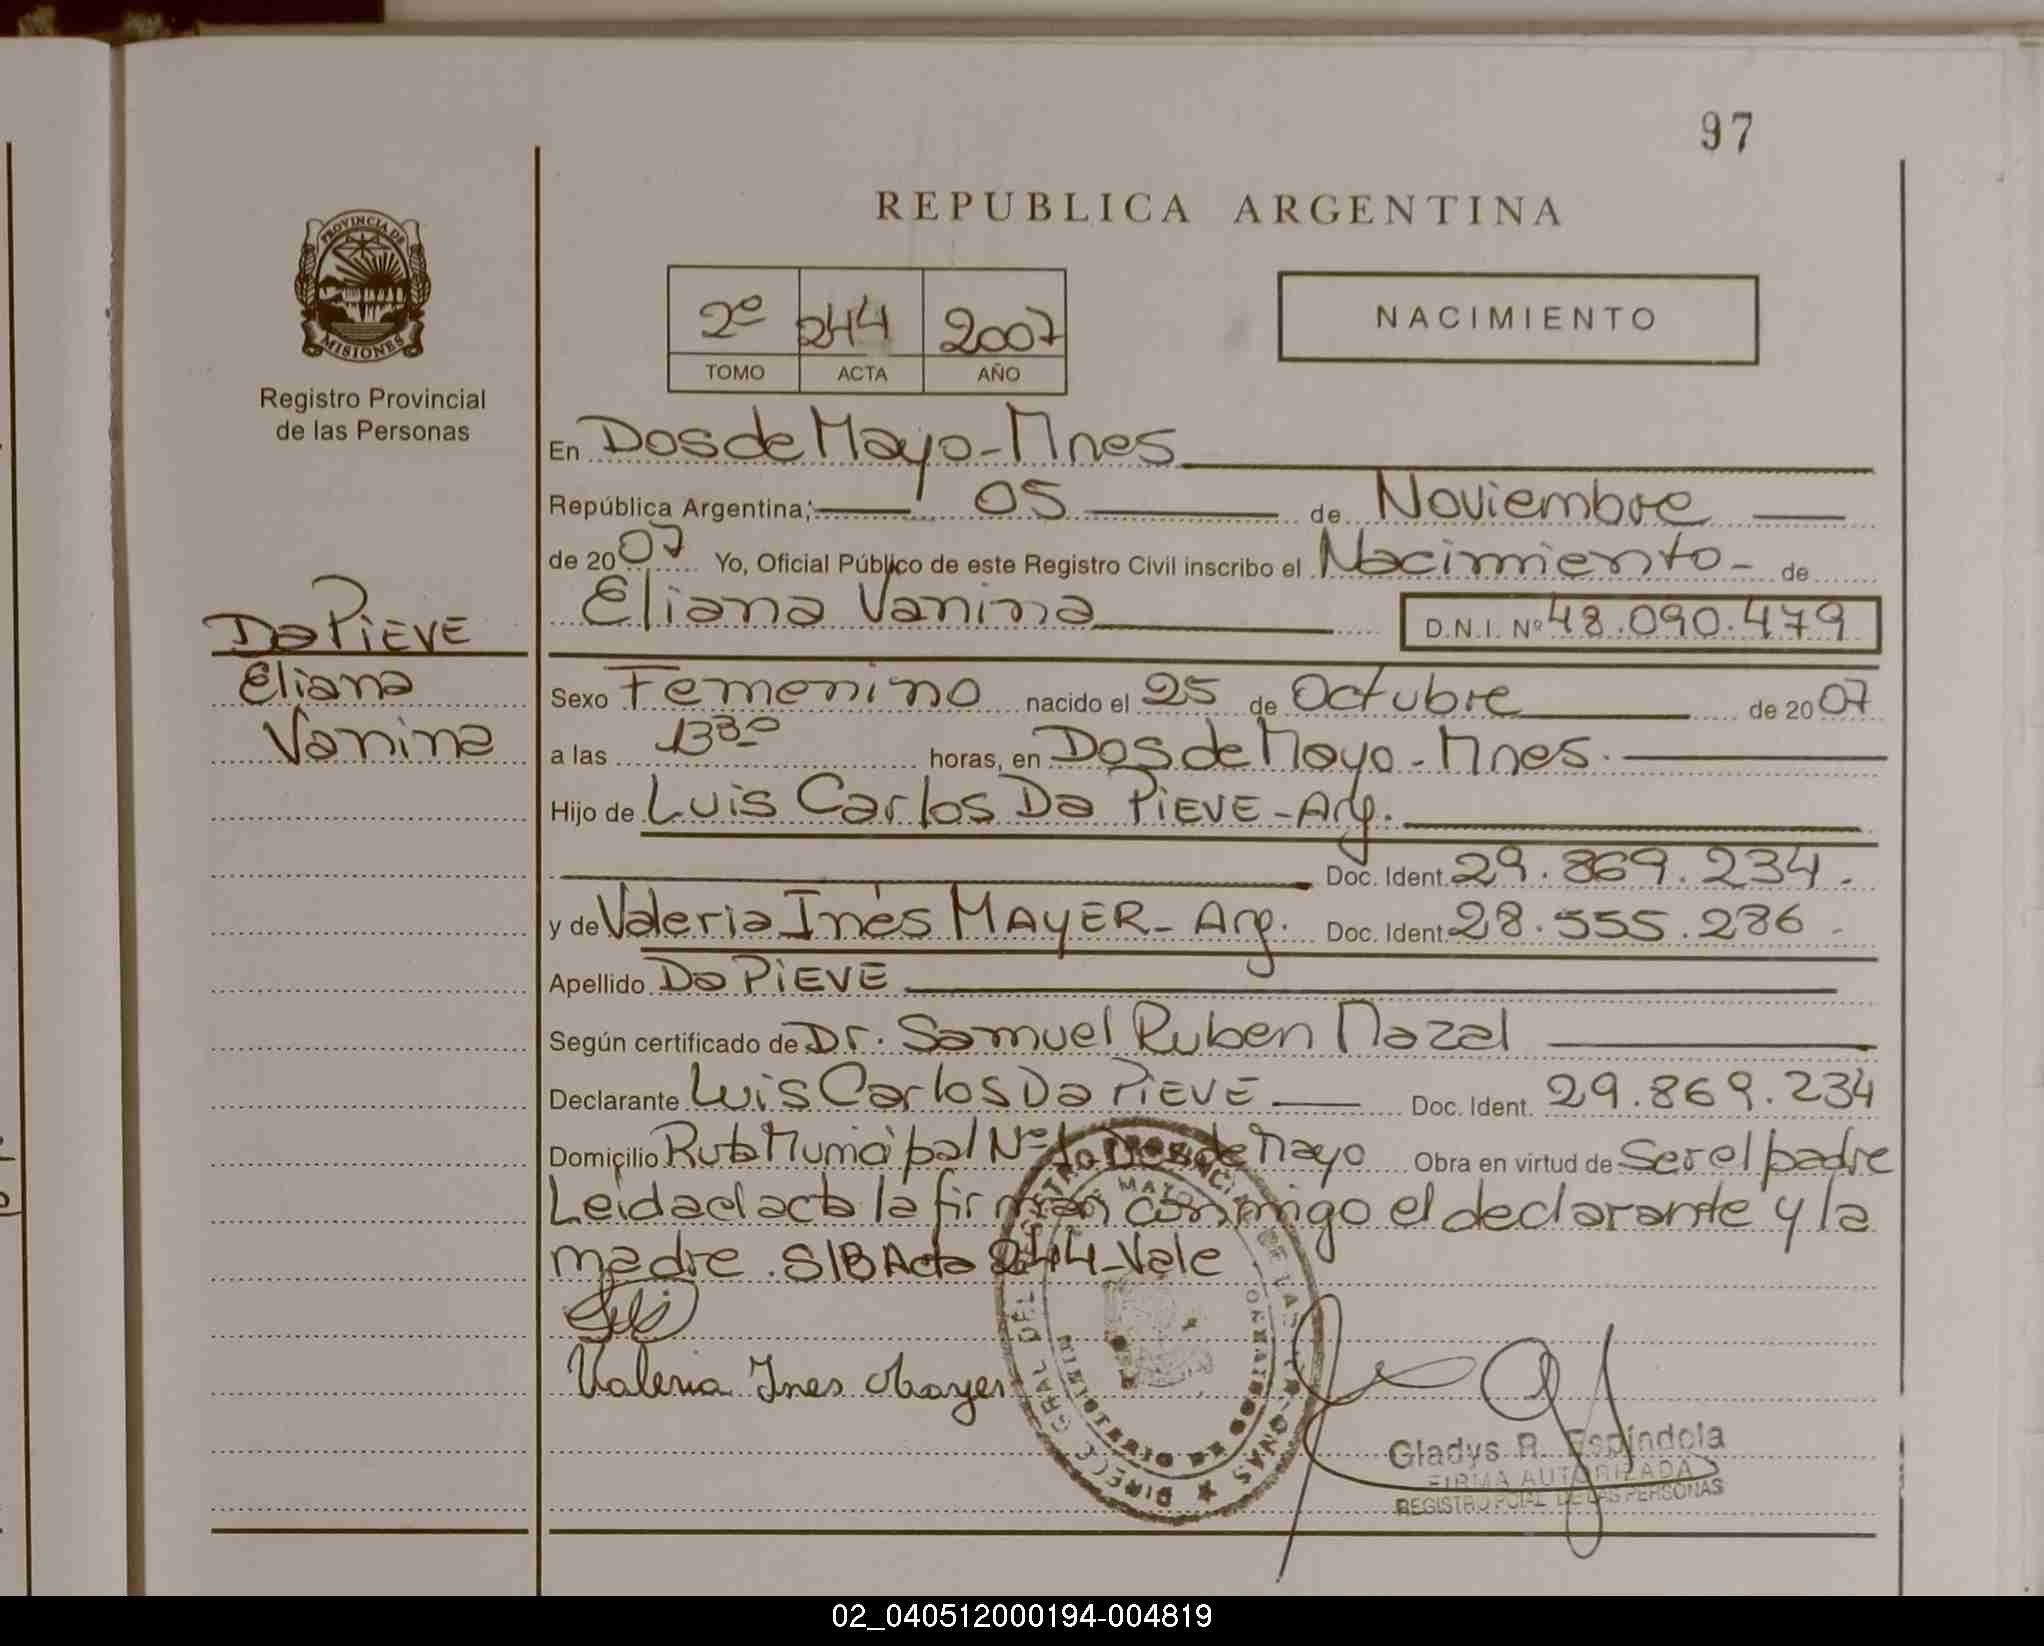 97
REPUBLICA ARGENTINA
PROVINCIA DE
MISIONES
Registro Provincial
de las Personas
2º 244 2007
TOMO ACTA AÑO
NACIMIENTO
En Dos de Mayo - Mnes
República Argentina; 05 de Noviembre
de 2007 Yo, Oficial Público de este Registro Civil inscribo el Nacimiento - de
Eliana Vanina D.N.I. Nº 48.090.479
Da PiEVE
Eliana
Vanina
Sexo Femenino nacido el 25 de Octubre de 2007
a las 13 30 horas, en Dos de Mayo - Mnes.
Hijo de Luis Carlos Da PiEVE - Arg.
Doc. Ident. 29.869.234.
y de Valeria Inés MAYER - Arg. Doc. Ident. 28.555.286 -
Apellido Da PiEVE
Según certificado de Dr. Samuel Ruben Nazal
Declarante Luis Carlos Da PiEVE Doc. Ident. 29.869.234
Domicilio Ruta Municipal Nº 1 Dos de Mayo Obra en virtud de Ser el padre
Leida el acta la firman conmigo el declarante y la
madre. S/B Acta 244 - Vale
Valeria Ines Mayer
Gladys R. Espíndola
FIRMA AUTORIZADA
REGISTRO PCIAL DE LAS PERSONAS
02_040512000194-004819